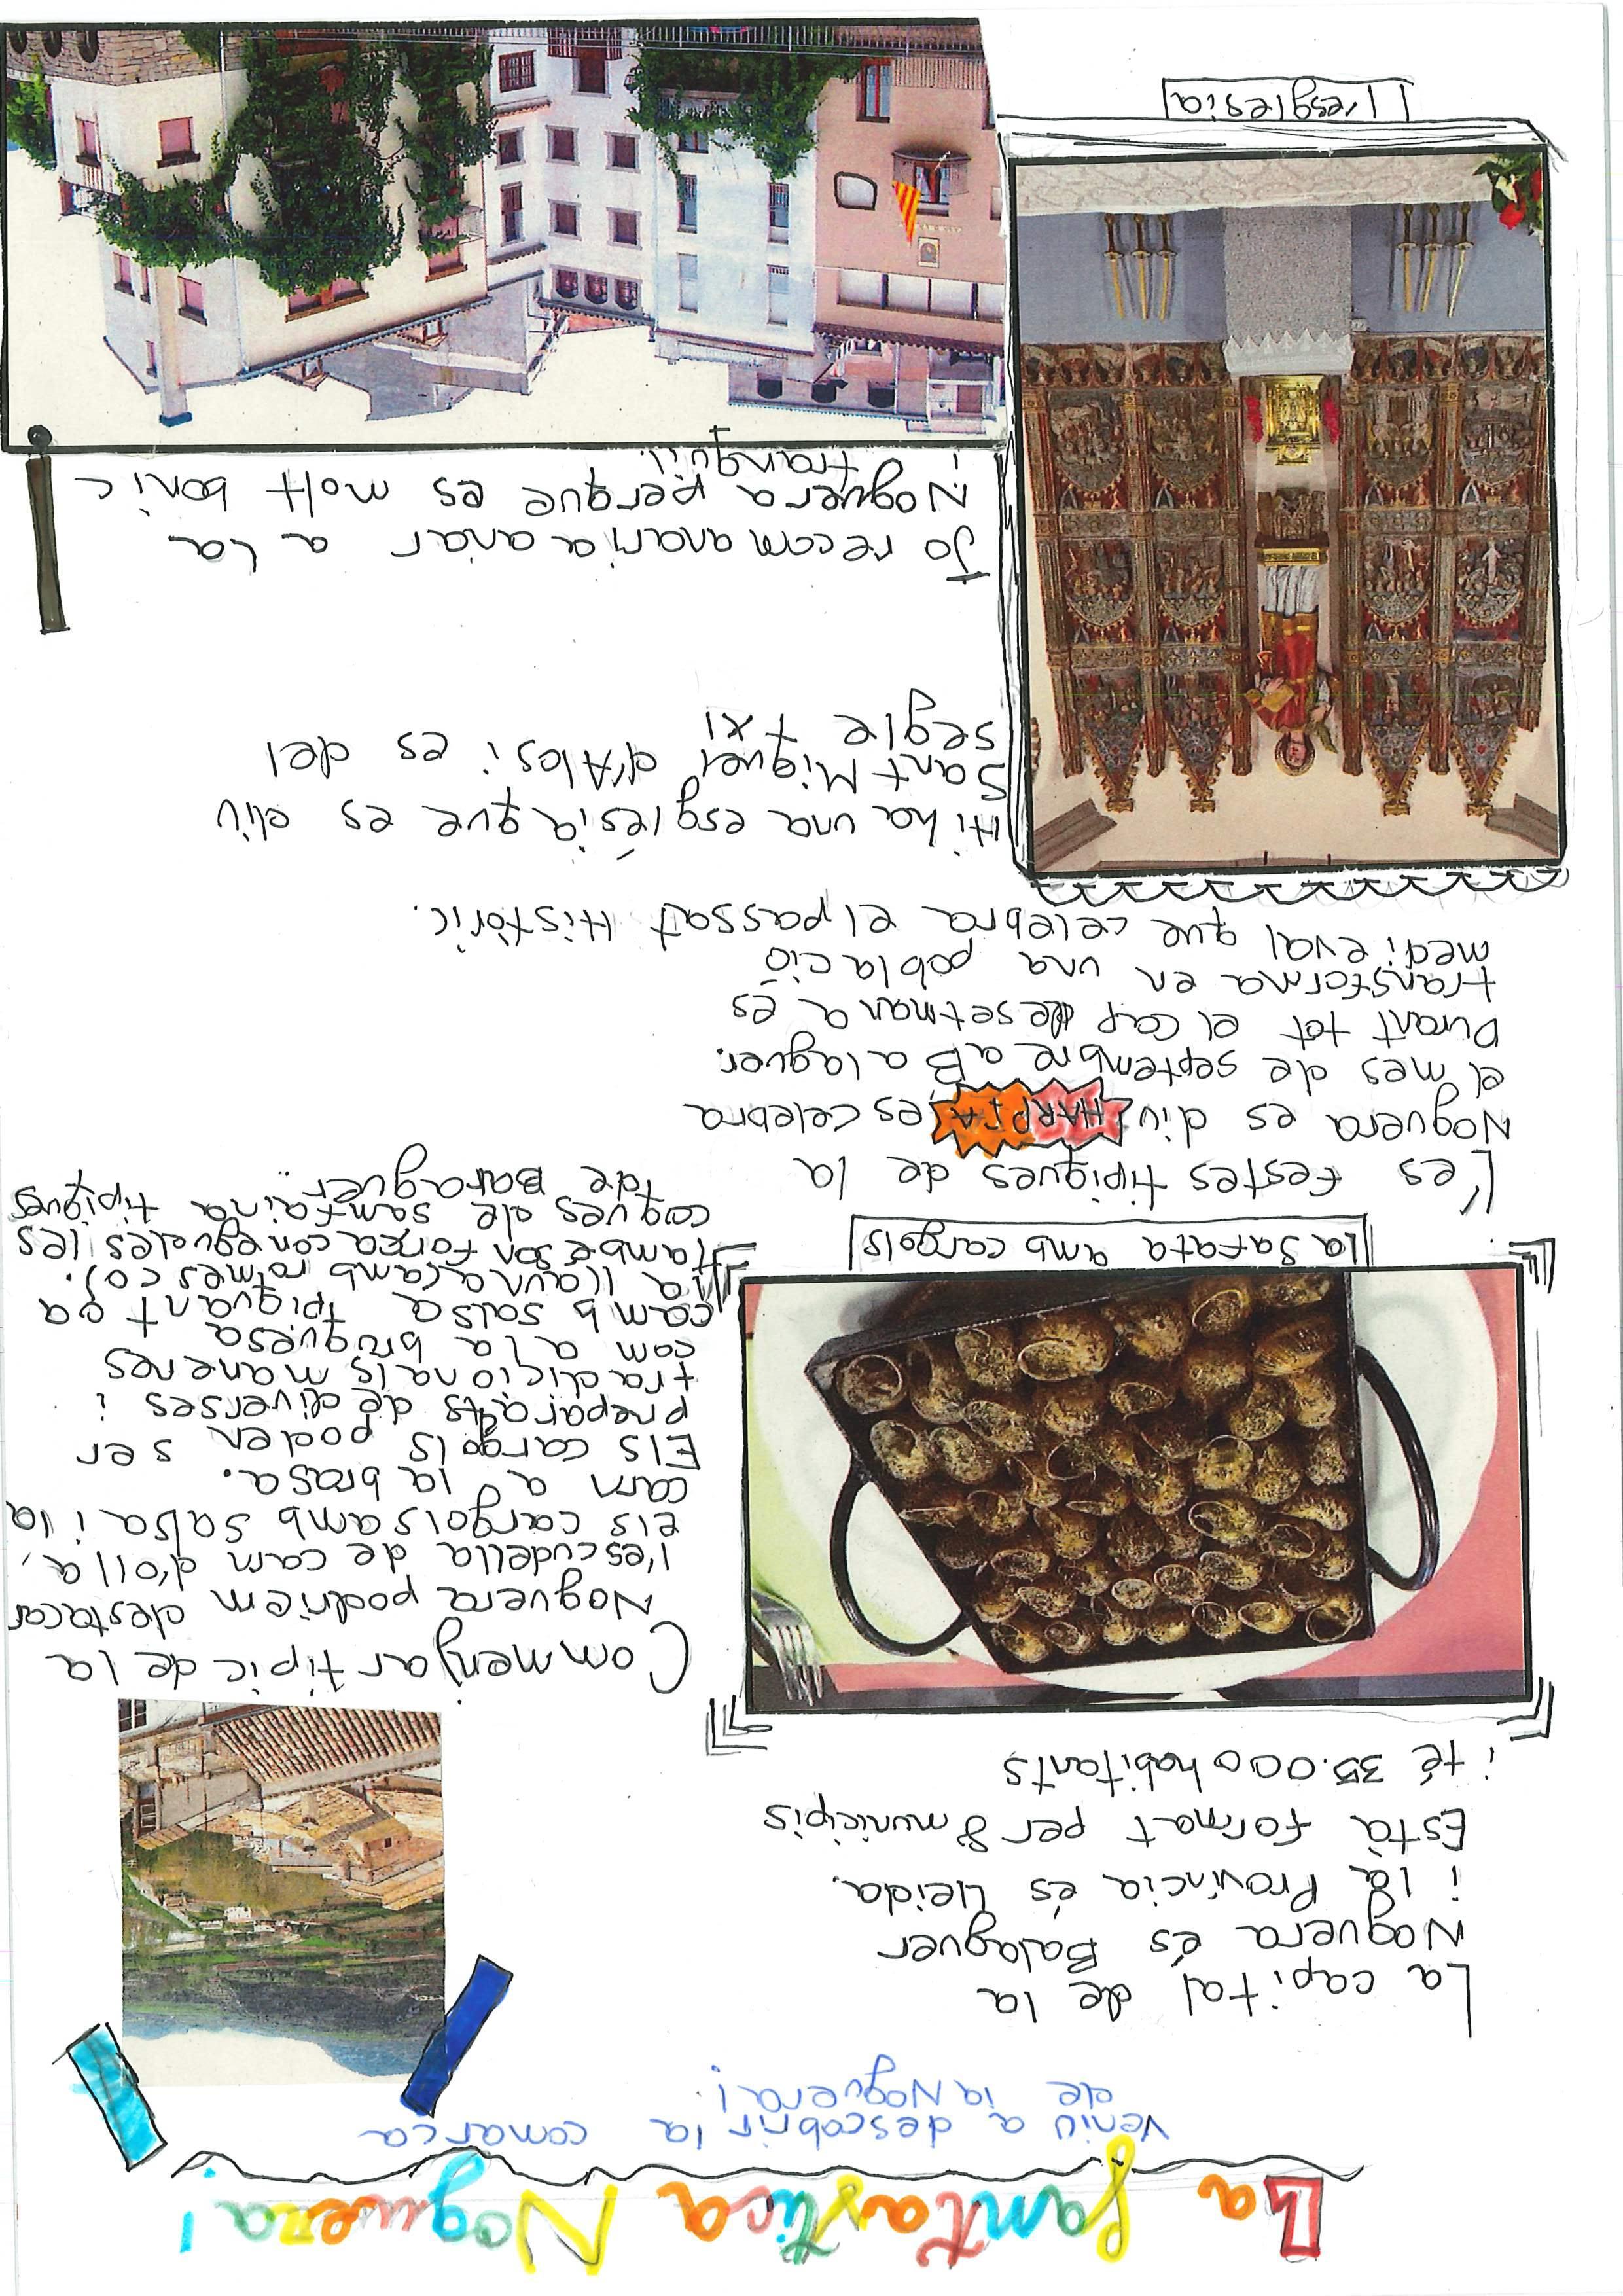 La fantastica Noguera!
Veniu a descobrir la comarca
de la Noguera!
La capital de la
Noguera és Balaguer
i la Província és Lleida.
Està format per 8 municipis
i té 35.000 habitants
Com menjar tipic de la
Noguera podriem destacar
l'escudella de carn d'olla,
els cargols amb salsa i la
carn a la brasa.
Els cargols poden ser
preparats de diverses i
tradicionals maneres
com a la bruquesa
camb salsa piquant oa
la llauna (amb romesco).
tambe son força conegudes les
coques de samfaina tipiques
de Baraguer.
La Safata amb cargols
L'es festes tipiques de la
Noguera es diu HARPIA es celebra
el mes de septembre a Balaguer.
Durant tot el cap de setmana és
transforma en una població
medieval que celebra el passat Històric.
Hi ha una església que es diu
Sant Miquel d'Alos i es del
segle XI
Jo recomanaria anar a La
Noguera perque es molt bonic
i tranquil.
l'esglesia